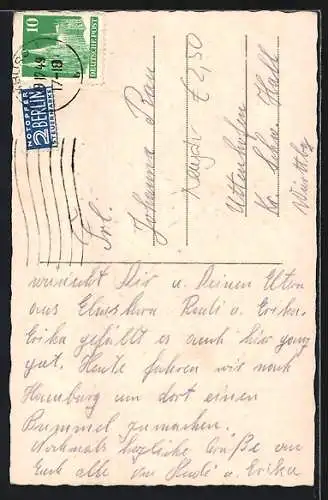 10
DEUTSCHE POST
NOTOPFER
2 BERLIN
STEUERMARKE
17-18
Frl.
Johanna Rau
Neujahr € 2,50
Uttenhofen
Kr. Schw. Hall
Württbg
wünscht Dir u. Deinen Eltern
aus Elmshorn Rudi u. Erika.
Erika gefällt es auch hier ganz
gut. Heute fahren wir nach
Hamburg um dort einen
Bummel zu machen.
Nochmals herzliche Grüße an
Euch alle von Rudi u. Erika